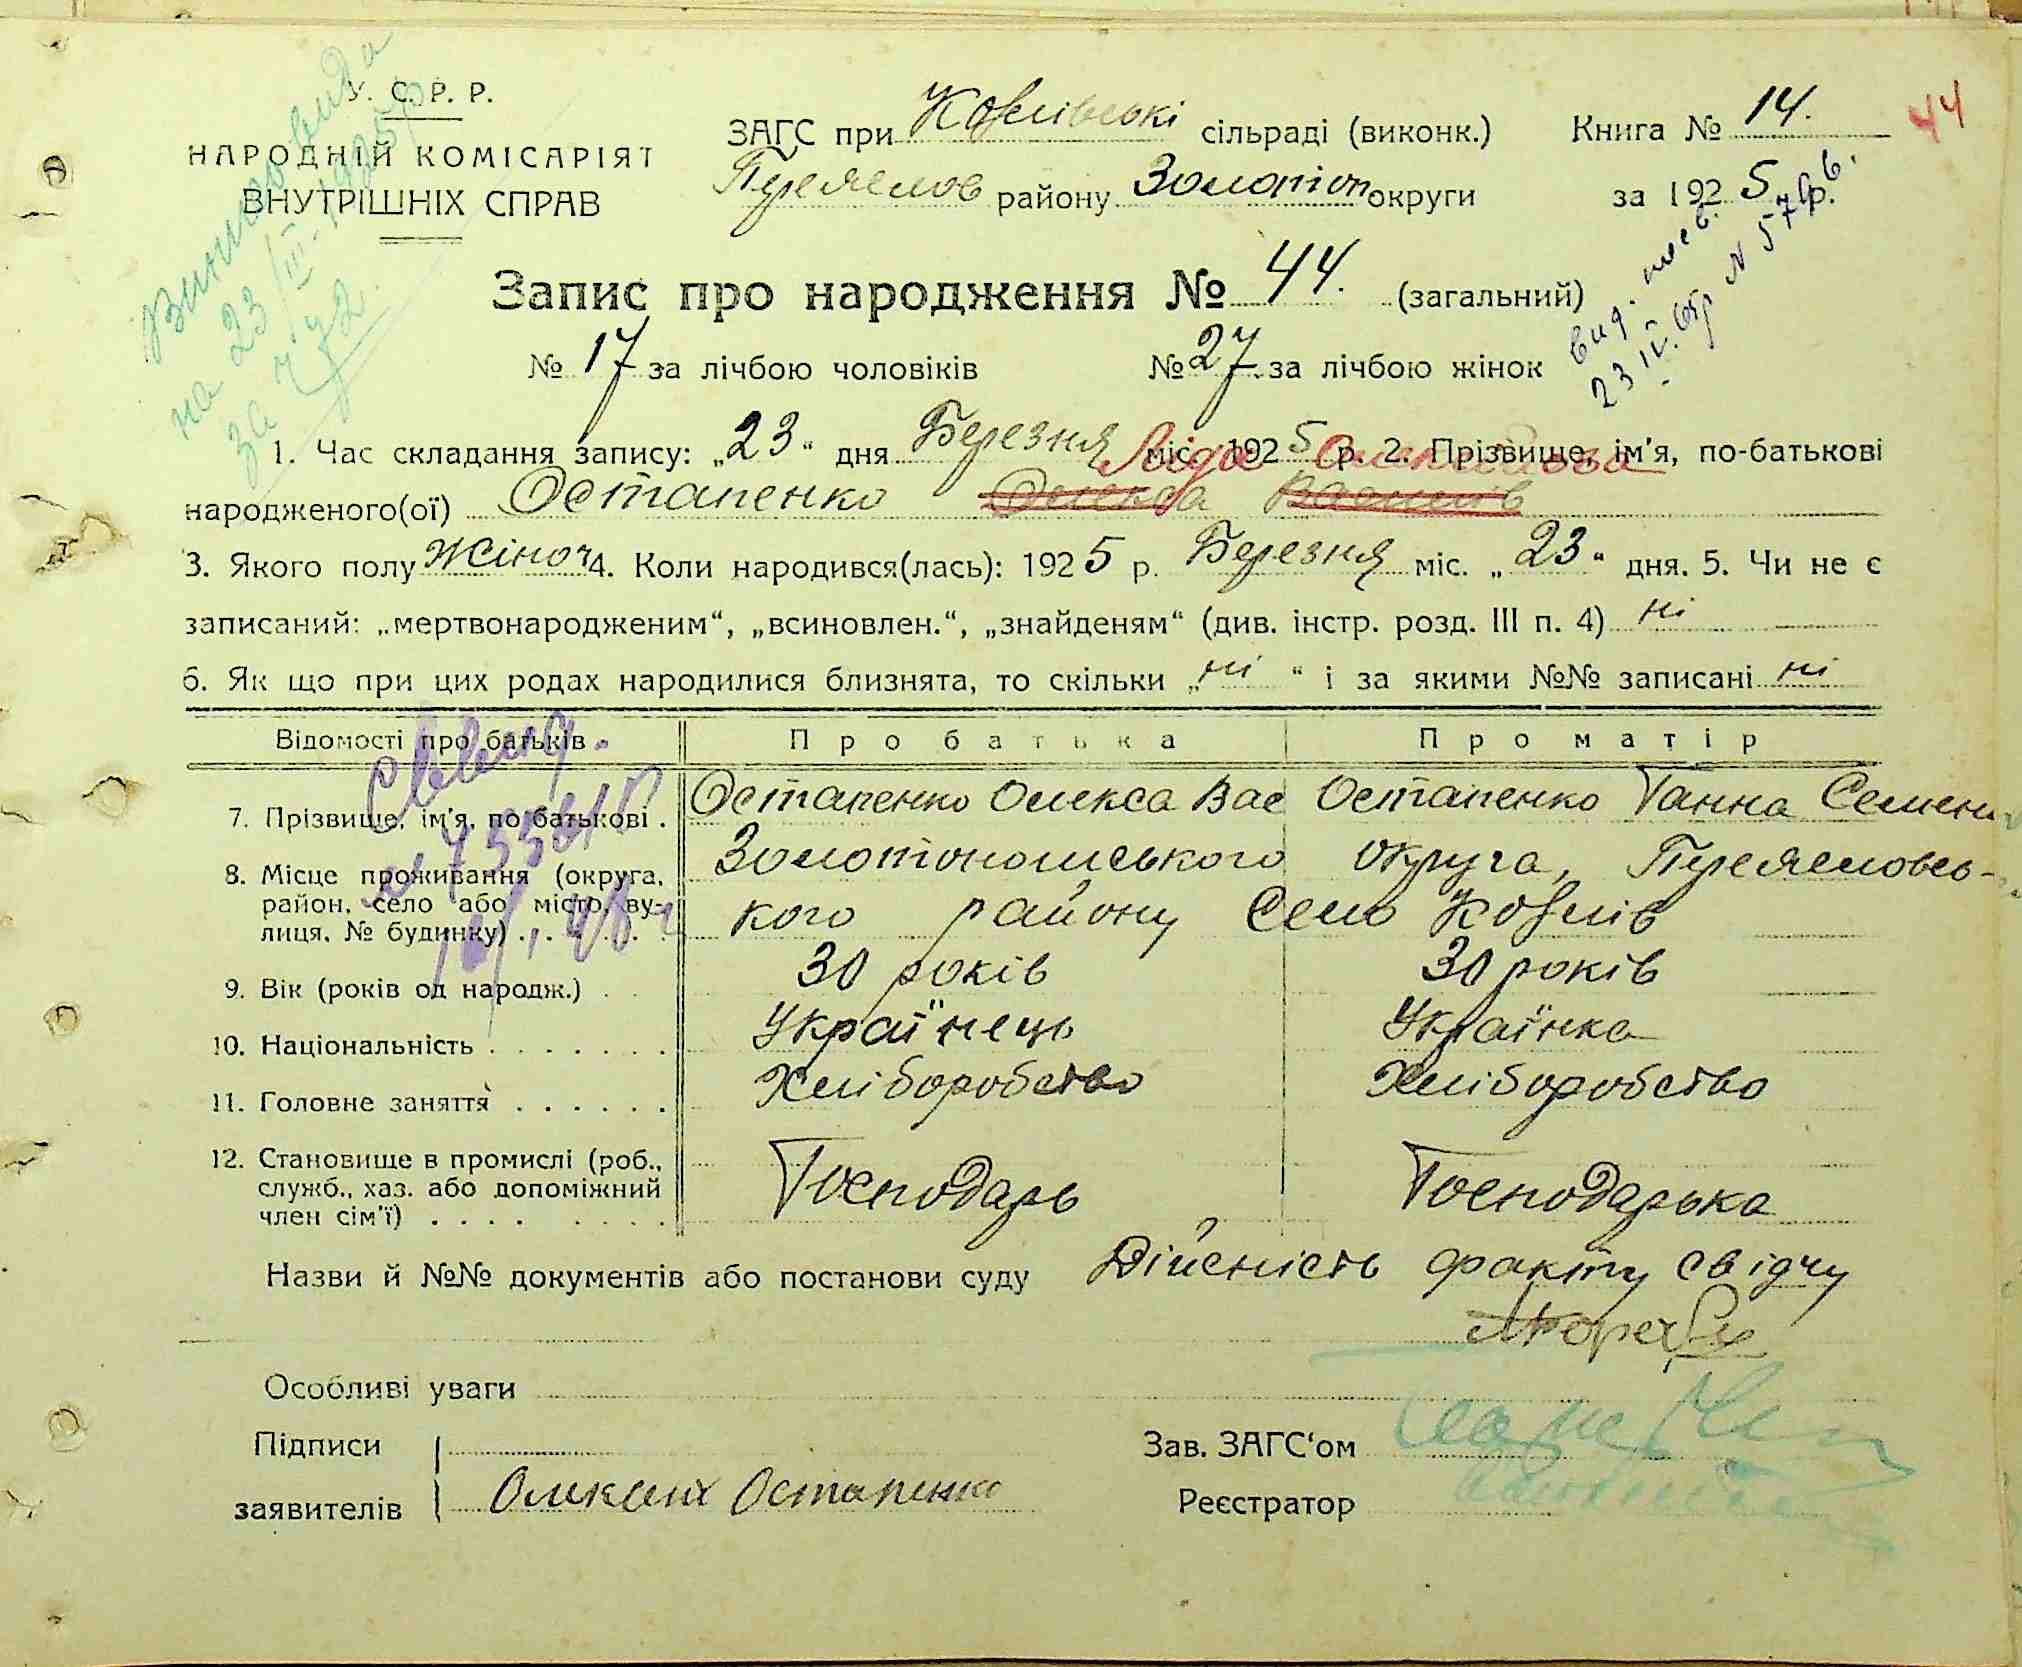 У. С. Р. Р.
НАРОДНІЙ КОМІСАРІЯТ
ВНУТРІШНІХ СПРАВ
ЗАГС при Ковлівські сільраді (виконк.)
Книга № 14.
44
Переяслов району Золотон округи
за 1925 р.
на 23/III-1925р
за ч. 92.
Запис про народження № 44. (загальний)
вид. 23 IV. 65р N 57
№ 17 за лічбою чоловіків № 27 за лічбою жінок
1. Час складання запису: „23“ дня Березня міс. 1925 р. 2. Прізвище, ім'я, по-батькові
Лідія Олексійовна
народженого(ої) Остапенко Олекса Василів
3. Якого полу Жіноч 4. Коли народився(лась): 1925 р. Березня міс. „23“ дня. 5. Чи не є
записаний: „мертвонародженим“, „всиновлен.“, „знайденям“ (див. інстр. розд. III п. 4) ні
6. Як що при цих родах народилися близнята, то скільки „ні“ і за якими №№ записані ні
Відомості про батьків Про батька Про матір
Сввид.
7. Прізвище, ім'я, по батькові . Остапенко Олекса Вас Остапенко Ганна Семен
8. Місце проживання (округа, район, село або місто, вулиця, № будинку) . . . . . Золотоношського округа, Переясловсь-
кого району Село Ковлів
9. Вік (років од народж.) . . 30 років 30 років
10. Національність . . . . . . . Українець Українка
11. Головне заняття . . . . . . Хліборобство Хліборобство
12. Становище в промислі (роб., служб., хаз. або допоміжний член сім'ї) . . . . . . . . Господарь Господарька
Назви й №№ документів або постанови суду Дійсність факту свідчу
Особливі уваги
Підписи
заявителів Олексій Остапенко
Зав. ЗАГС‘ом
Реєстратор